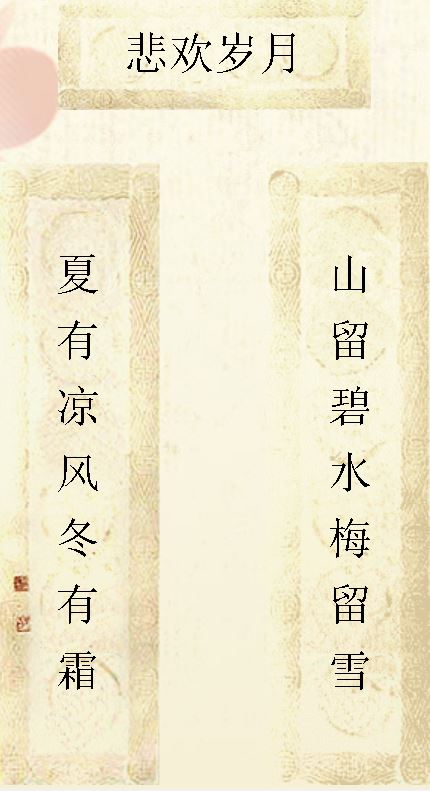 悲欢岁月
山留碧水梅留雪
夏有凉风冬有霜